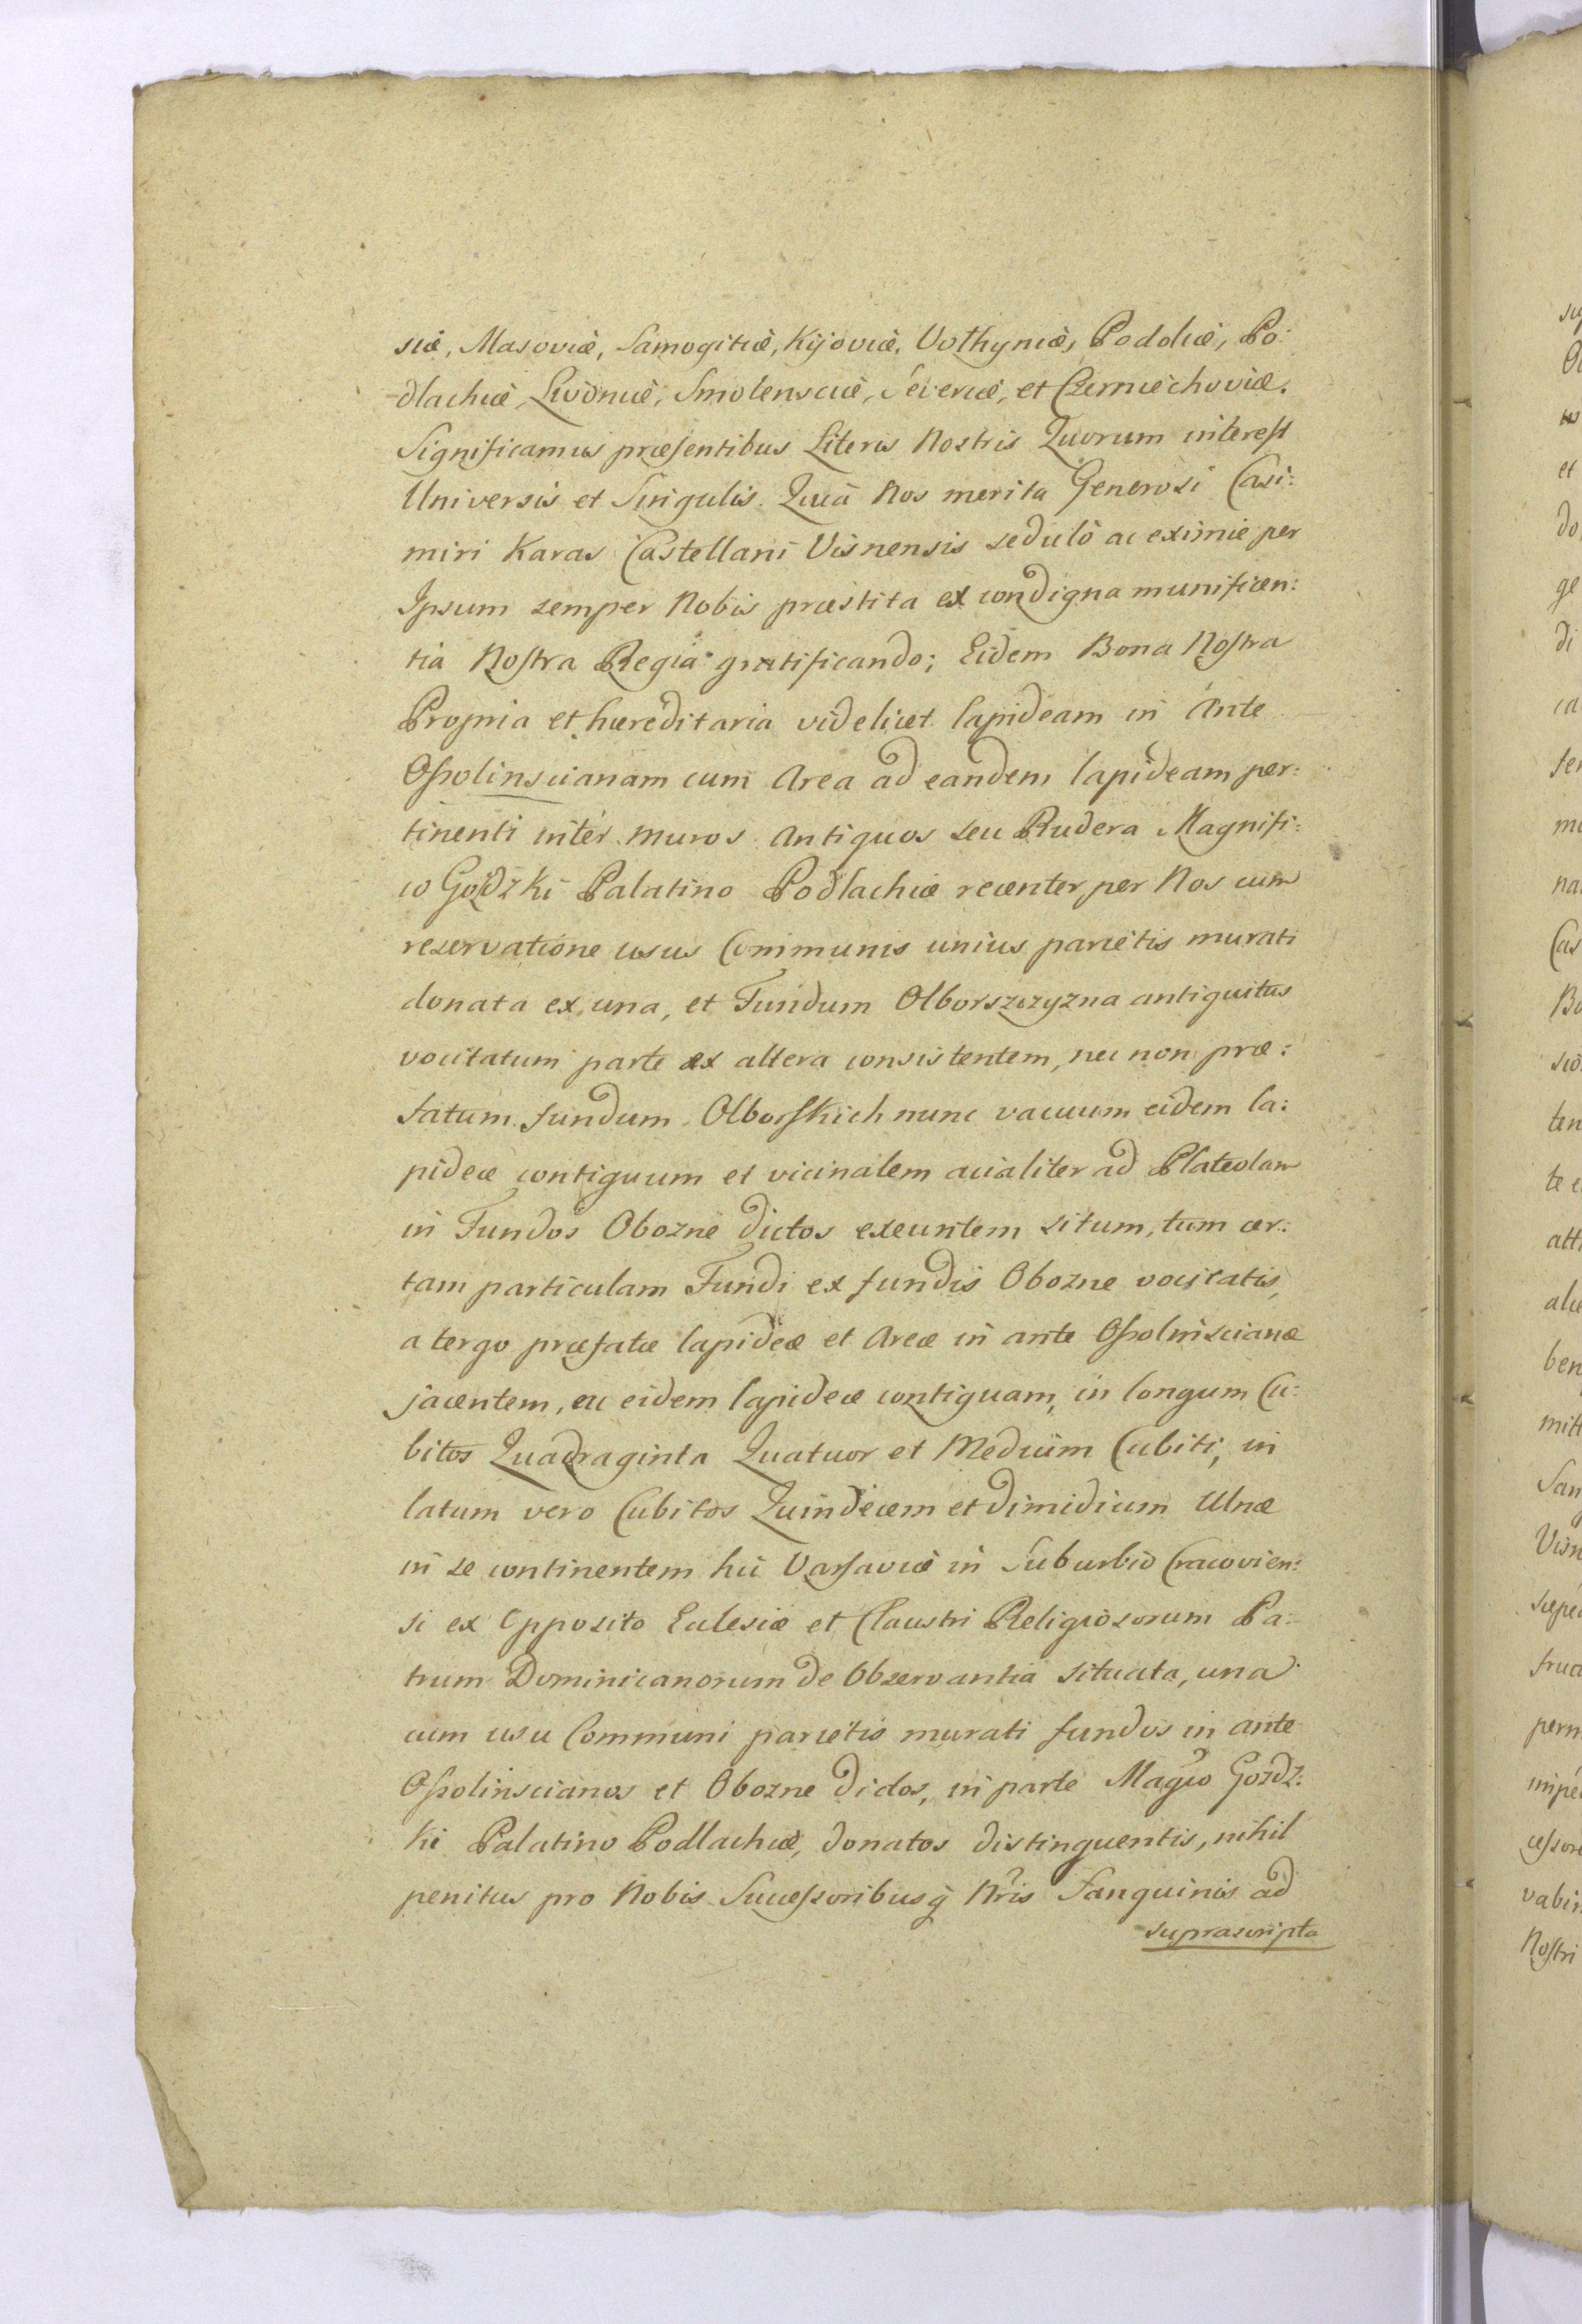 siæ, Masoviæ, Samogitiæ, Kijoviæ, Volhyniæ, Podoliæ, Po:
dlachiæ, Livoniæ, Smolensciæ, Severiæ, et Czerniechoviæ.
Significamus præsentibus Literis Nostris Quorum interest
Universis et Singulis. Quia Nos merita Generosi Casi:
miri Karas Castellani Visnensis sedulò ac eximie per
Ipsum semper Nobis præstita ex condigna munificen:
tia Nostra Regia gratificando; Eidem Bona Nostra
Propria et hæreditaria videlicet lapideam in Ante
Ossolinscianam cum Area ad eandem lapideam per:
tinenti inter muros Antiquos seu Rudera Magnifi:
co Gozdzki Palatino Podlachiæ recenter per Nos cum
reservatione usus Communis unius parietis murati
donata ex una, et Fundum Olborszczyzna antiquitus
vocitatum parte ex altera consistentem, nec non præ:
fatum fundum Olborskich nunc vacuum eidem la:
pideæ contiguum et vicinalem acialiter ad Plateolam
in Fundos Obozne dictos exeuntem situm, tum cer:
tam particulam Fundi ex fundis Obozne vocitatis,
a tergo præfatæ lapideæ et Areæ in ante Ossolinscianæ
jacentem, ac eidem lapideæ contiguam, in longum Cu:
bitos Quadraginta Quatuor et Medium Cubiti, in
latum vero Cubitos Quindecem et dimidium Ulnæ
in se continentem hic Varsaviæ in Suburbio Cracovien:
si ex Opposito Eclesiæ et Claustri Religiosorum Pa:
trum Dominicanorum de Observantia situata, una
cum usu Communi parietis murati fundos in ante
Ossolinscianos et Obozne dictos, in parte Magco Gozdz:
ki Palatino Podlachiæ, donatos distinguentis, nihil
penitus pro Nobis Successoribusq Nris Sanguinis ad
suprascripta